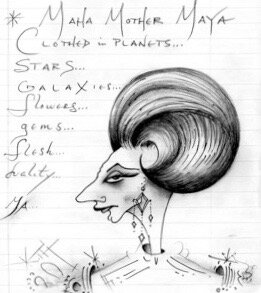 * MAHA MOTHER MAYA
CLOTHED in PLANETS...
STARS...
GALAXIES...
flowers...
gems...
flesh...
duality...
MA...